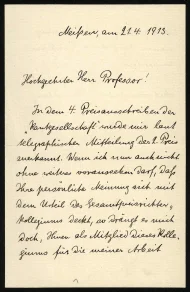 Meißen, am 21.4.1913.
Hochgeehrter Herr Professor!
In dem 4. Preisausschreiben der
"Kantgesellschaft" wurde mir laut
telegraphischer Mitteilung der I. Preis
zuerkannt. Wenn ich nun auch nicht
ohne weiteres voraussetzen darf, daß
Ihre persönliche Meinung sich mit
dem Urteil des Gesamtpreisrichter-
kollegiums deckt, so drängt es mich
doch, Ihnen als Mitglied dieses Kolle-
giums für die meiner Arbeit